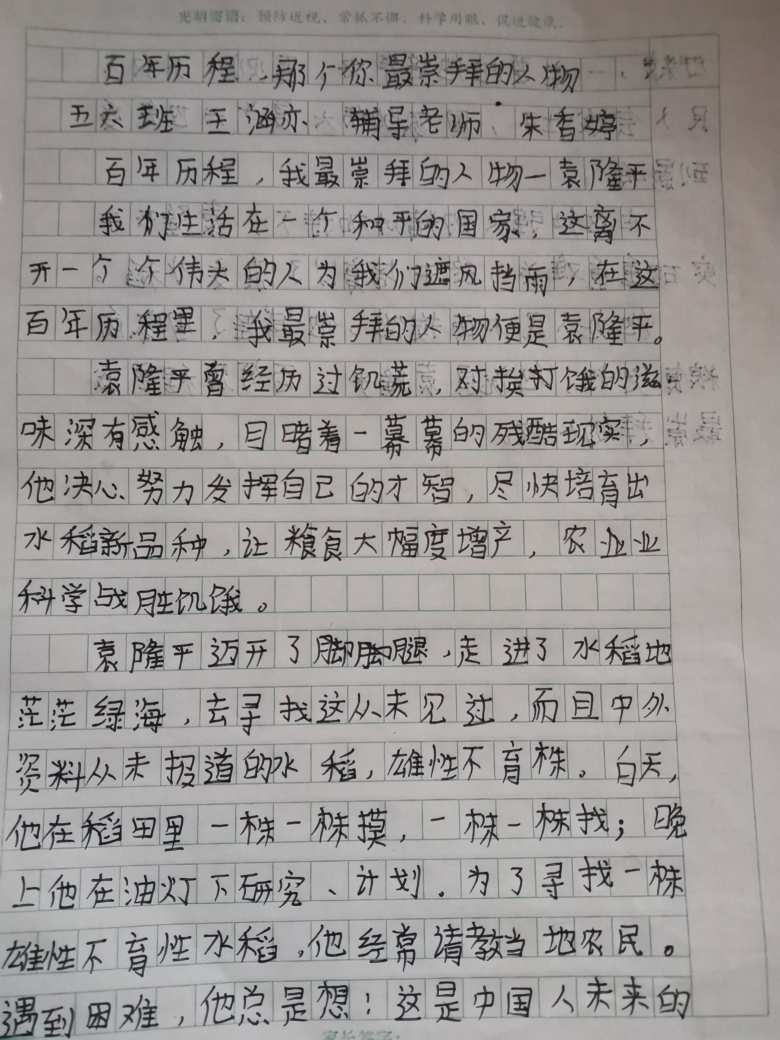 光明寄语：预防近视，常抓不懈，科学用眼，促进健康。
百年历程，那个你最崇拜的人物
五六班 王涵亦 辅导老师：朱香婷
百年历程，我最崇拜的人物一袁隆平
我们生活在一个和平的国家，这离不
开一个个伟大的人为我们遮风挡雨，在这
百年历程里，我最崇拜的人物便是袁隆平。
袁隆平曾经历过饥荒，对挨打饿的滋
味深有感触，目睹着一幕幕的残酷现实，
他决心努力发挥自己的才智，尽快培育出
水稻新品种，让粮食大幅度增产，农业业
科学战胜饥饿。
袁隆平迈开了脚脚腿，走进了水稻地
茫茫绿海，去寻找这从未见过，而且中外
资料从未报道的水稻，雄性不育株。白天，
他在稻田里一株一株摸，一株一株找；晚
上他在油灯下研究、计划．为了寻找一株
雄性不育性水稻，他经常请教当地农民。
遇到困难，他总是想！这是中国人未来的